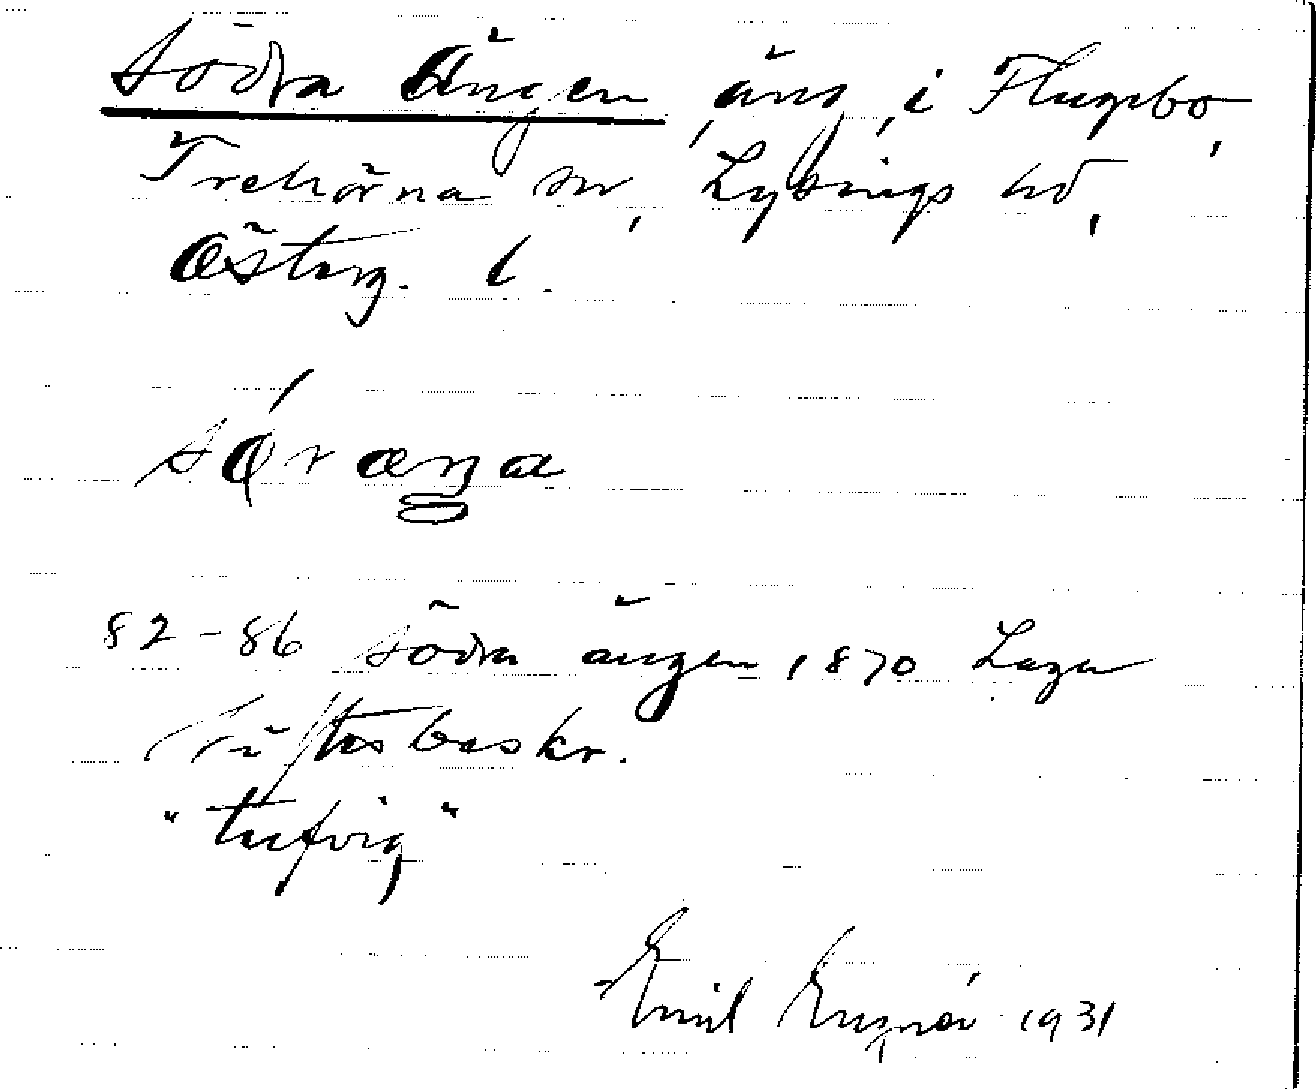 Södra Ängen, äng, i Flugebo,
Trehörna sn, Lysings hd,
Österg. l.
82-86 Södra ängen 1870 Laga
skiftesbeskr.
"tufvig"
Emil Engnér 1931